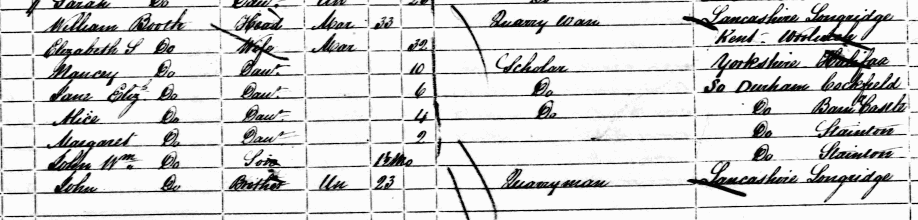 Sarah Do Daur
William Booth Head Mar 33 Quarry Man Lancashire Longridge
Elizabeth S Do Wife Mar 32 Kent - Woolwich
Nancey Do Daur 10 Scholar Yorkshire Halifax
Jane Eliz. Do Daur 6 Do So Durham Cockfield
Alice Do Daur 4 Do Do Barnd Castle
Margaret Do Daur 2 Do Stainton
John Wm Do Son Do Stainton
John Do Brother Un 23 Quarryman Lancashire Longridge